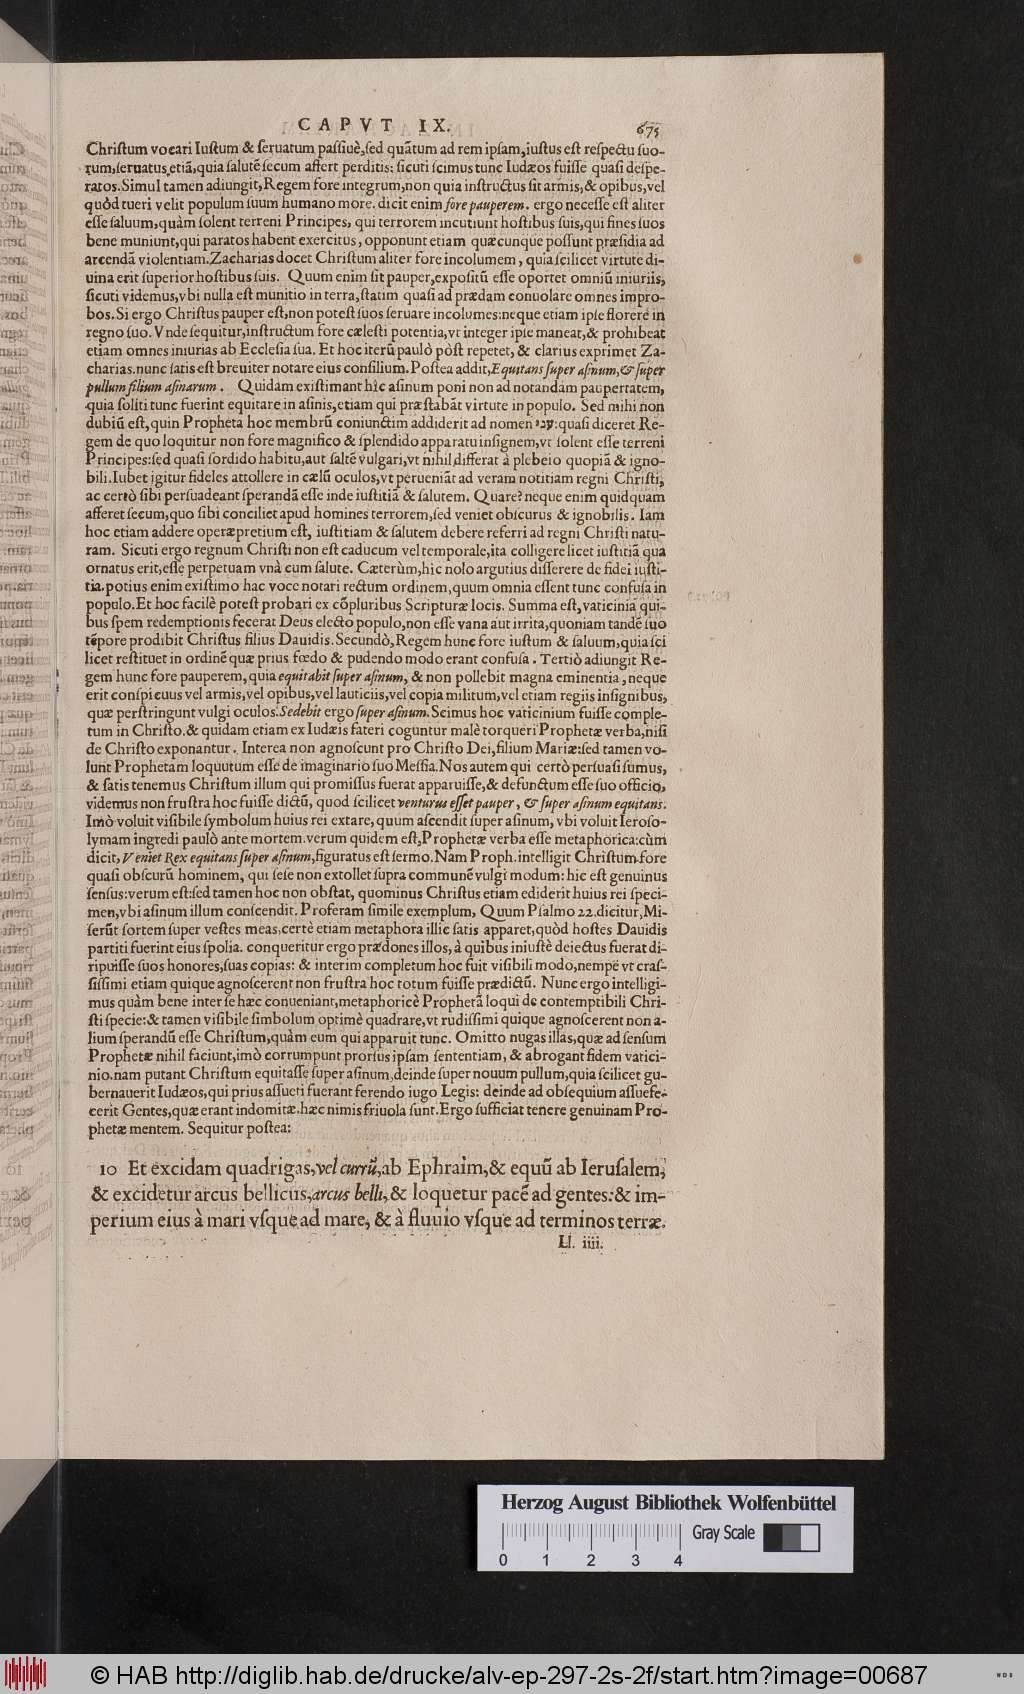 CAPVT IX. 675
Chriſtum vocari Iuſtum & ſeruatum paſſiuè, ſed quãtum ad rem ipſam, iuſtus eſt reſpectu ſuo-
rum, ſeruatus etiã, quia ſalutẽ ſecum affert perditis: ſicuti ſcimus tunc Iudæos fuiſſe quaſi deſpe-
ratos. Simul tamen adiungit, Regem fore integrum, non quia inſtructus ſit armis, & opibus, vel
quòd tueri velit populum ſuum humano more. dicit enim fore pauperem. ergo neceſſe eſt aliter
eſſe ſaluum, quàm ſolent terreni Principes, qui terrorem incutiunt hoſtibus ſuis, qui fines ſuos
bene muniunt, qui paratos habent exercitus, opponunt etiam quæcunque poſſunt præſidia ad
arcendã violentiam. Zacharias docet Chriſtum aliter fore incolumem, quia ſcilicet virtute di-
uina erit ſuperior hoſtibus ſuis. Quum enim ſit pauper, expoſitũ eſſe oportet omniũ iniuriis,
ſicuti videmus, vbi nulla eſt munitio in terra, ſtatim quaſi ad prædam conuolare omnes impro-
bos. Si ergo Chriſtus pauper eſt, non poteſt ſuos ſeruare incolumes: neque etiam ipſe florere in
regno ſuo. Vnde ſequitur, inſtructum fore cæleſti potentia, vt integer ipſe maneat, & prohibeat
etiam omnes iniurias ab Eccleſia ſua. Et hoc iterũ paulò pòſt repetet, & clarius exprimet Za-
charias. nunc ſatis eſt breuiter notare eius conſilium. Poſtea addit, Equitans ſuper aſinum, & ſuper
pullum filium aſinarum. Quidam exiſtimant hîc aſinum poni non ad notandam paupertatem,
quia ſoliti tunc fuerint equitare in aſinis, etiam qui præſtabãt virtute in populo. Sed mihi non
dubiũ eſt, quin Propheta hoc membrũ coniunctim addiderit ad nomen עני: quaſi diceret Re-
gem de quo loquitur non fore magnifico & ſplendido apparatu inſignem, vt ſolent eſſe terreni
Principes: ſed quaſi ſordido habitu, aut ſaltẽ vulgari, vt nihil differat à plebeio quopiã & igno-
bili. Iubet igitur fideles attollere in cælũ oculos, vt perueniãt ad veram notitiam regni Chriſti,
ac certò ſibi perſuadeant ſperandã eſſe inde iuſtitiã & ſalutem. Quare? neque enim quidquam
afferet ſecum, quo ſibi conciliet apud homines terrorem, ſed veniet obſcurus & ignobilis. Iam
hoc etiam addere operæpretium eſt, iuſtitiam & ſalutem debere referri ad regni Chriſti natu-
ram. Sicuti ergo regnum Chriſti non eſt caducum vel temporale, ita colligere licet iuſtitiã qua
ornatus erit, eſſe perpetuam vnà cum ſalute. Cæterùm, hic nolo argutius diſſerere de fidei iuſti-
tia. potius enim exiſtimo hac voce notari rectum ordinem, quum omnia eſſent tunc confuſa in
populo. Et hoc facilè poteſt probari ex cõpluribus Scripturæ locis. Summa eſt, vaticinia qui-
bus ſpem redemptionis fecerat Deus electo populo, non eſſe vana aut irrita, quoniam tandẽ ſuo
tẽpore prodibit Chriſtus filius Dauidis. Secundò, Regem hunc fore iuſtum & ſaluum, quia ſci
licet reſtituet in ordinẽ quæ prius fœdo & pudendo modo erant confuſa. Tertiò adiungit Re-
gem hunc fore pauperem, quia equitabit ſuper aſinum, & non pollebit magna eminentia, neque
erit conſpicuus vel armis, vel opibus, vel lauticiis, vel copia militum, vel etiam regiis inſignibus,
quæ perſtringunt vulgi oculos. Sedebit ergo ſuper aſinum. Scimus hoc vaticinium fuiſſe comple-
tum in Chriſto. & quidam etiam ex Iudæis fateri coguntur malè torqueri Prophetæ verba, niſi
de Chriſto exponantur. Interea non agnoſcunt pro Chriſto Dei, filium Mariæ: ſed tamen vo-
lunt Prophetam loquutum eſſe de imaginario ſuo Meſſia. Nos autem qui certò perſuaſi ſumus,
& ſatis tenemus Chriſtum illum qui promiſſus fuerat apparuiſſe, & defunctum eſſe ſuo officio,
videmus non fruſtra hoc fuiſſe dictũ, quod ſcilicet venturus eſſet pauper, & ſuper aſinum equitans.
Imò voluit viſibile ſymbolum huius rei extare, quum aſcendit ſuper aſinum, vbi voluit Ieroſo-
lymam ingredi paulò ante mortem. verum quidem eſt, Prophetæ verba eſſe metaphorica: cùm
dicit, Veniet Rex equitans ſuper aſinum, figuratus eſt ſermo. Nam Proph. intelligit Chriſtum fore
quaſi obſcurũ hominem, qui ſeſe non extollet ſupra communẽ vulgi modum: hic eſt genuinus
ſenſus: verum eſt: ſed tamen hoc non obſtat, quominus Chriſtus etiam ediderit huius rei ſpeci-
men, vbi aſinum illum conſcendit. Proferam ſimile exemplum, Quum Pſalmo 22. dicitur, Mi-
ſerũt ſortem ſuper veſtes meas, certè etiam metaphora illic ſatis apparet, quòd hoſtes Dauidis
partiti fuerint eius ſpolia. conqueritur ergo prædones illos, à quibus iniuſtè deiectus fuerat di-
ripuiſſe ſuos honores, ſuas copias: & interim completum hoc fuit viſibili modo, nempe vt craſ-
ſiſſimi etiam quique agnoſcerent non fruſtra hoc totum fuiſſe prædictũ. Nunc ergo intelligi-
mus quàm bene inter ſe hæc conueniant, metaphoricè Prophetã loqui de contemptibili Chri-
ſti ſpecie: & tamen viſibile ſimbolum optimè quadrare, vt rudiſſimi quique agnoſcerent non a-
lium ſperandũ eſſe Chriſtum, quàm eum qui apparuit tunc. Omitto nugas illas, quæ ad ſenſum
Prophetæ nihil faciunt, imò corrumpunt prorſus ipſam ſententiam, & abrogant fidem vatici-
nio. nam putant Chriſtum equitaſſe ſuper aſinum, deinde ſuper nouum pullum, quia ſcilicet gu-
bernauerit Iudæos, qui prius aſſueti fuerant ferendo iugo Legis: deinde ad obſequium aſſuefe-
cerit Gentes, quæ erant indomitæ. hæc nimis friuola ſunt. Ergo ſufficiat tenere genuinam Pro-
phetæ mentem. Sequitur poſtea:
10 Et excidam quadrigas, vel currũ, ab Ephraim, & equũ ab Ieruſalem,
& excidetur arcus bellicus, arcus belli, & loquetur pacẽ ad gentes: & im-
perium eius à mari vſque ad mare, & à fluuio vſque ad terminos terræ.
Ll. iiii.
Herzog August Bibliothek Wolfenbüttel
Gray Scale
0 1 2 3 4
© HAB http://diglib.hab.de/drucke/alv-ep-297-2s-2f/start.htm?image=00687